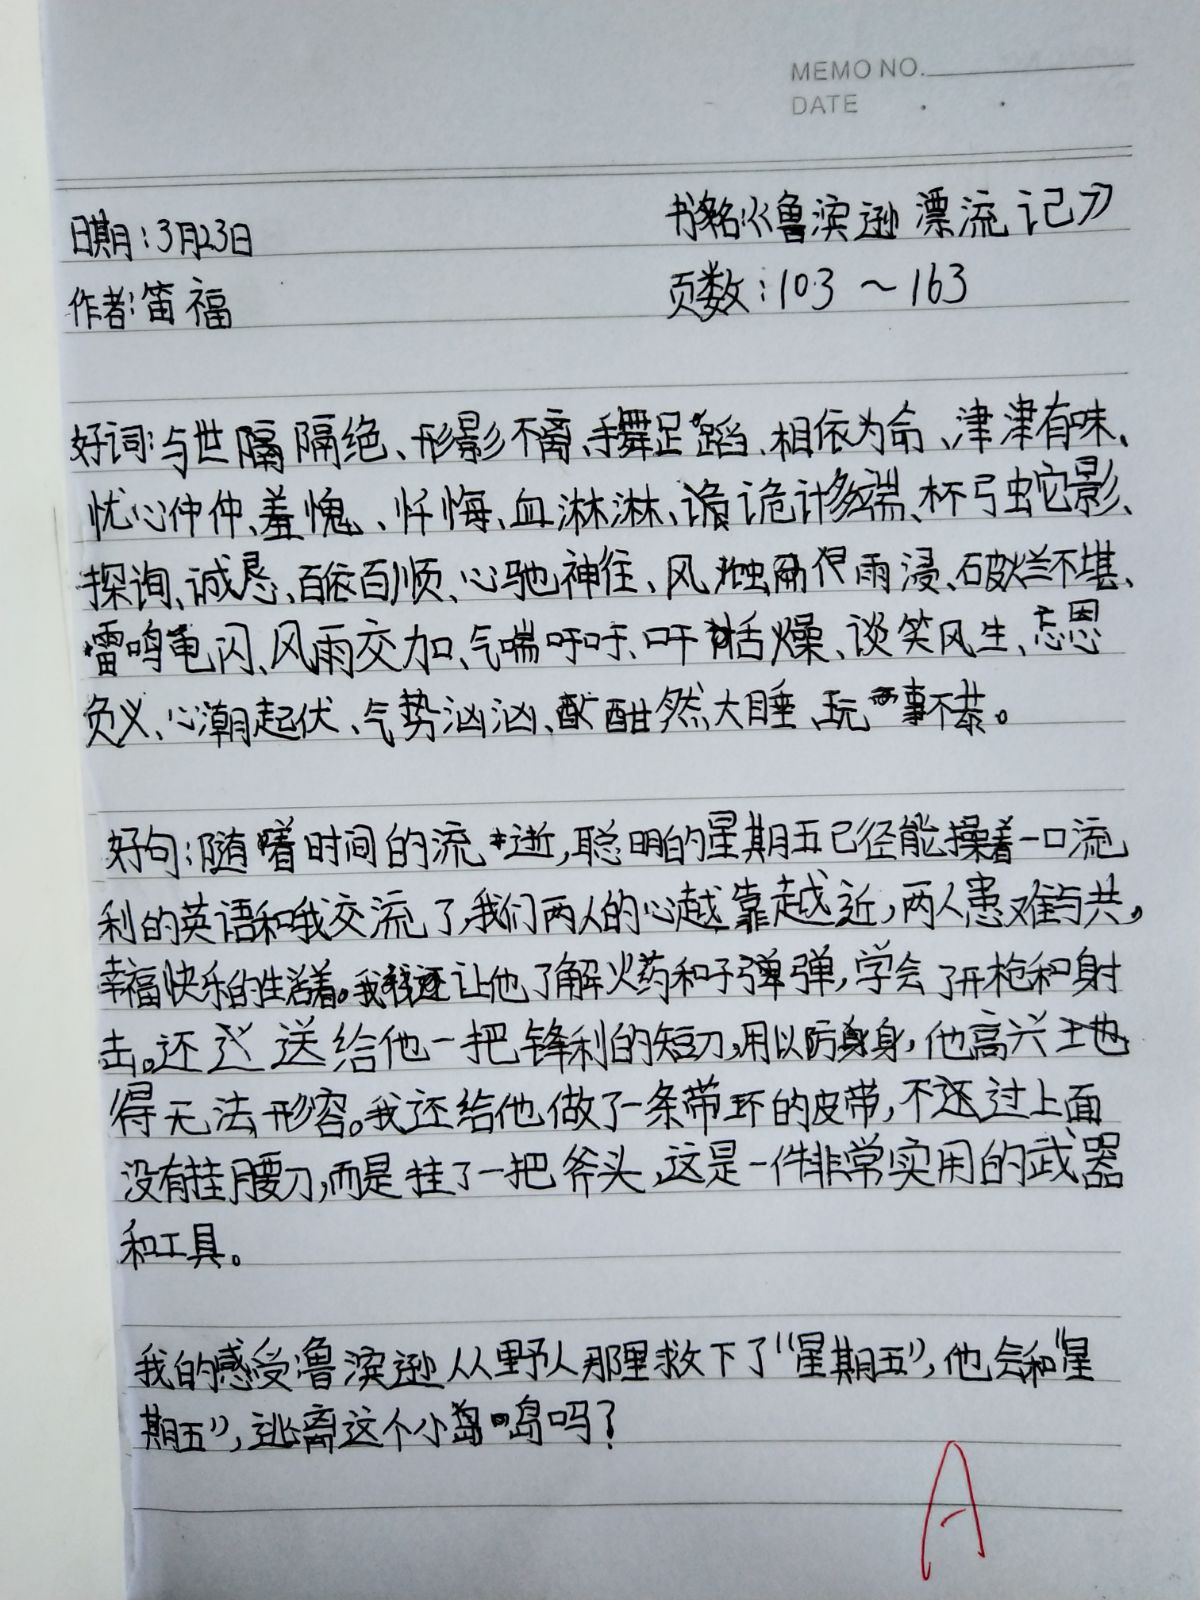 MEMO NO.
DATE . .
日期:3月23日 书名:《鲁滨逊漂流记》
作者:笛福 页数:103~163
好词:与世隔隔绝、形影不离、手舞足蹈、相依为命、津津有味、
忧心忡忡、羞愧、忏悔、血淋淋、诡诡计多端、杯弓蛇影、
探询、诚恳、百依百顺、心驰神往、风蚀雨浸、破烂不堪、
雷鸣电闪、风雨交加、气喘吁吁、口干舌燥、谈笑风生、忘恩
负义、心潮起伏、气势汹汹、酣然大睡、玩事不恭。
好句:随着时间的流逝,聪明的星期五已径能操着一口流
利的英语和我交流了,我们两人的心越靠越近,两人患难与共,
幸福快乐的生活着。我还让他了解火药和子弹弹,学会了开枪和射
击。还送给他一把锋利的短刀,用以防身身,他高兴
得无法形容。我还给他做了一条带环的皮带,不过上面
没有挂腰刀,而是挂了一把斧头,这是一件非常实用的武器
和工具。
我的感受鲁滨逊从野人那里救下了“星期五”,他会和“星
期五”,逃离这个小岛岛吗?
A